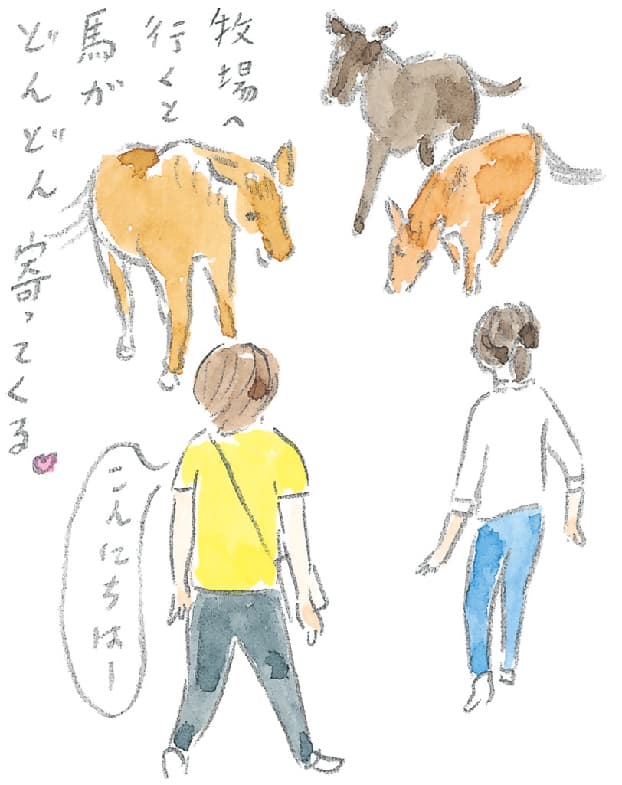 牧場へ
行くと
馬が
どんどん寄ってくる
こんにちはー